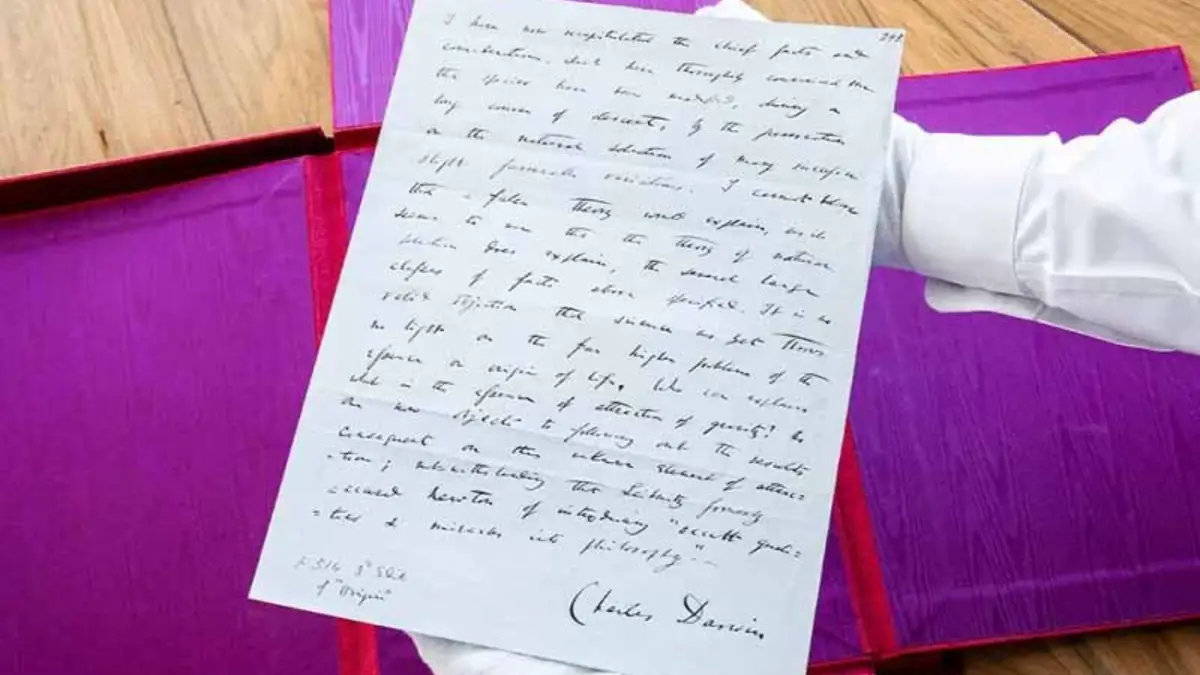 248
I have now recapitulated the chief facts and
considerations, which have thoroughly convinced me
that species have been modified, during a
long course of descent, by the preservation
or the natural selection of many successive
slight favourable variations. I cannot believe
that a false theory would explain, as it
seems to me that the theory of natural
selection does explain, the several large
classes of facts above specified. It is no
valid objection that science as yet throws
no light on the far higher problem of the
essence or origin of life. Who can explain
what is the essence of attraction of gravity? No
one now objects to following out the results
consequent on this unknown element of attrac=
=tion; notwithstanding that Leibnitz formerly
accused Newton of introducing "occult quali=
=ties & miracles into philosophy".—
p. 514 3d Edit
of "Origin"
Charles Darwin